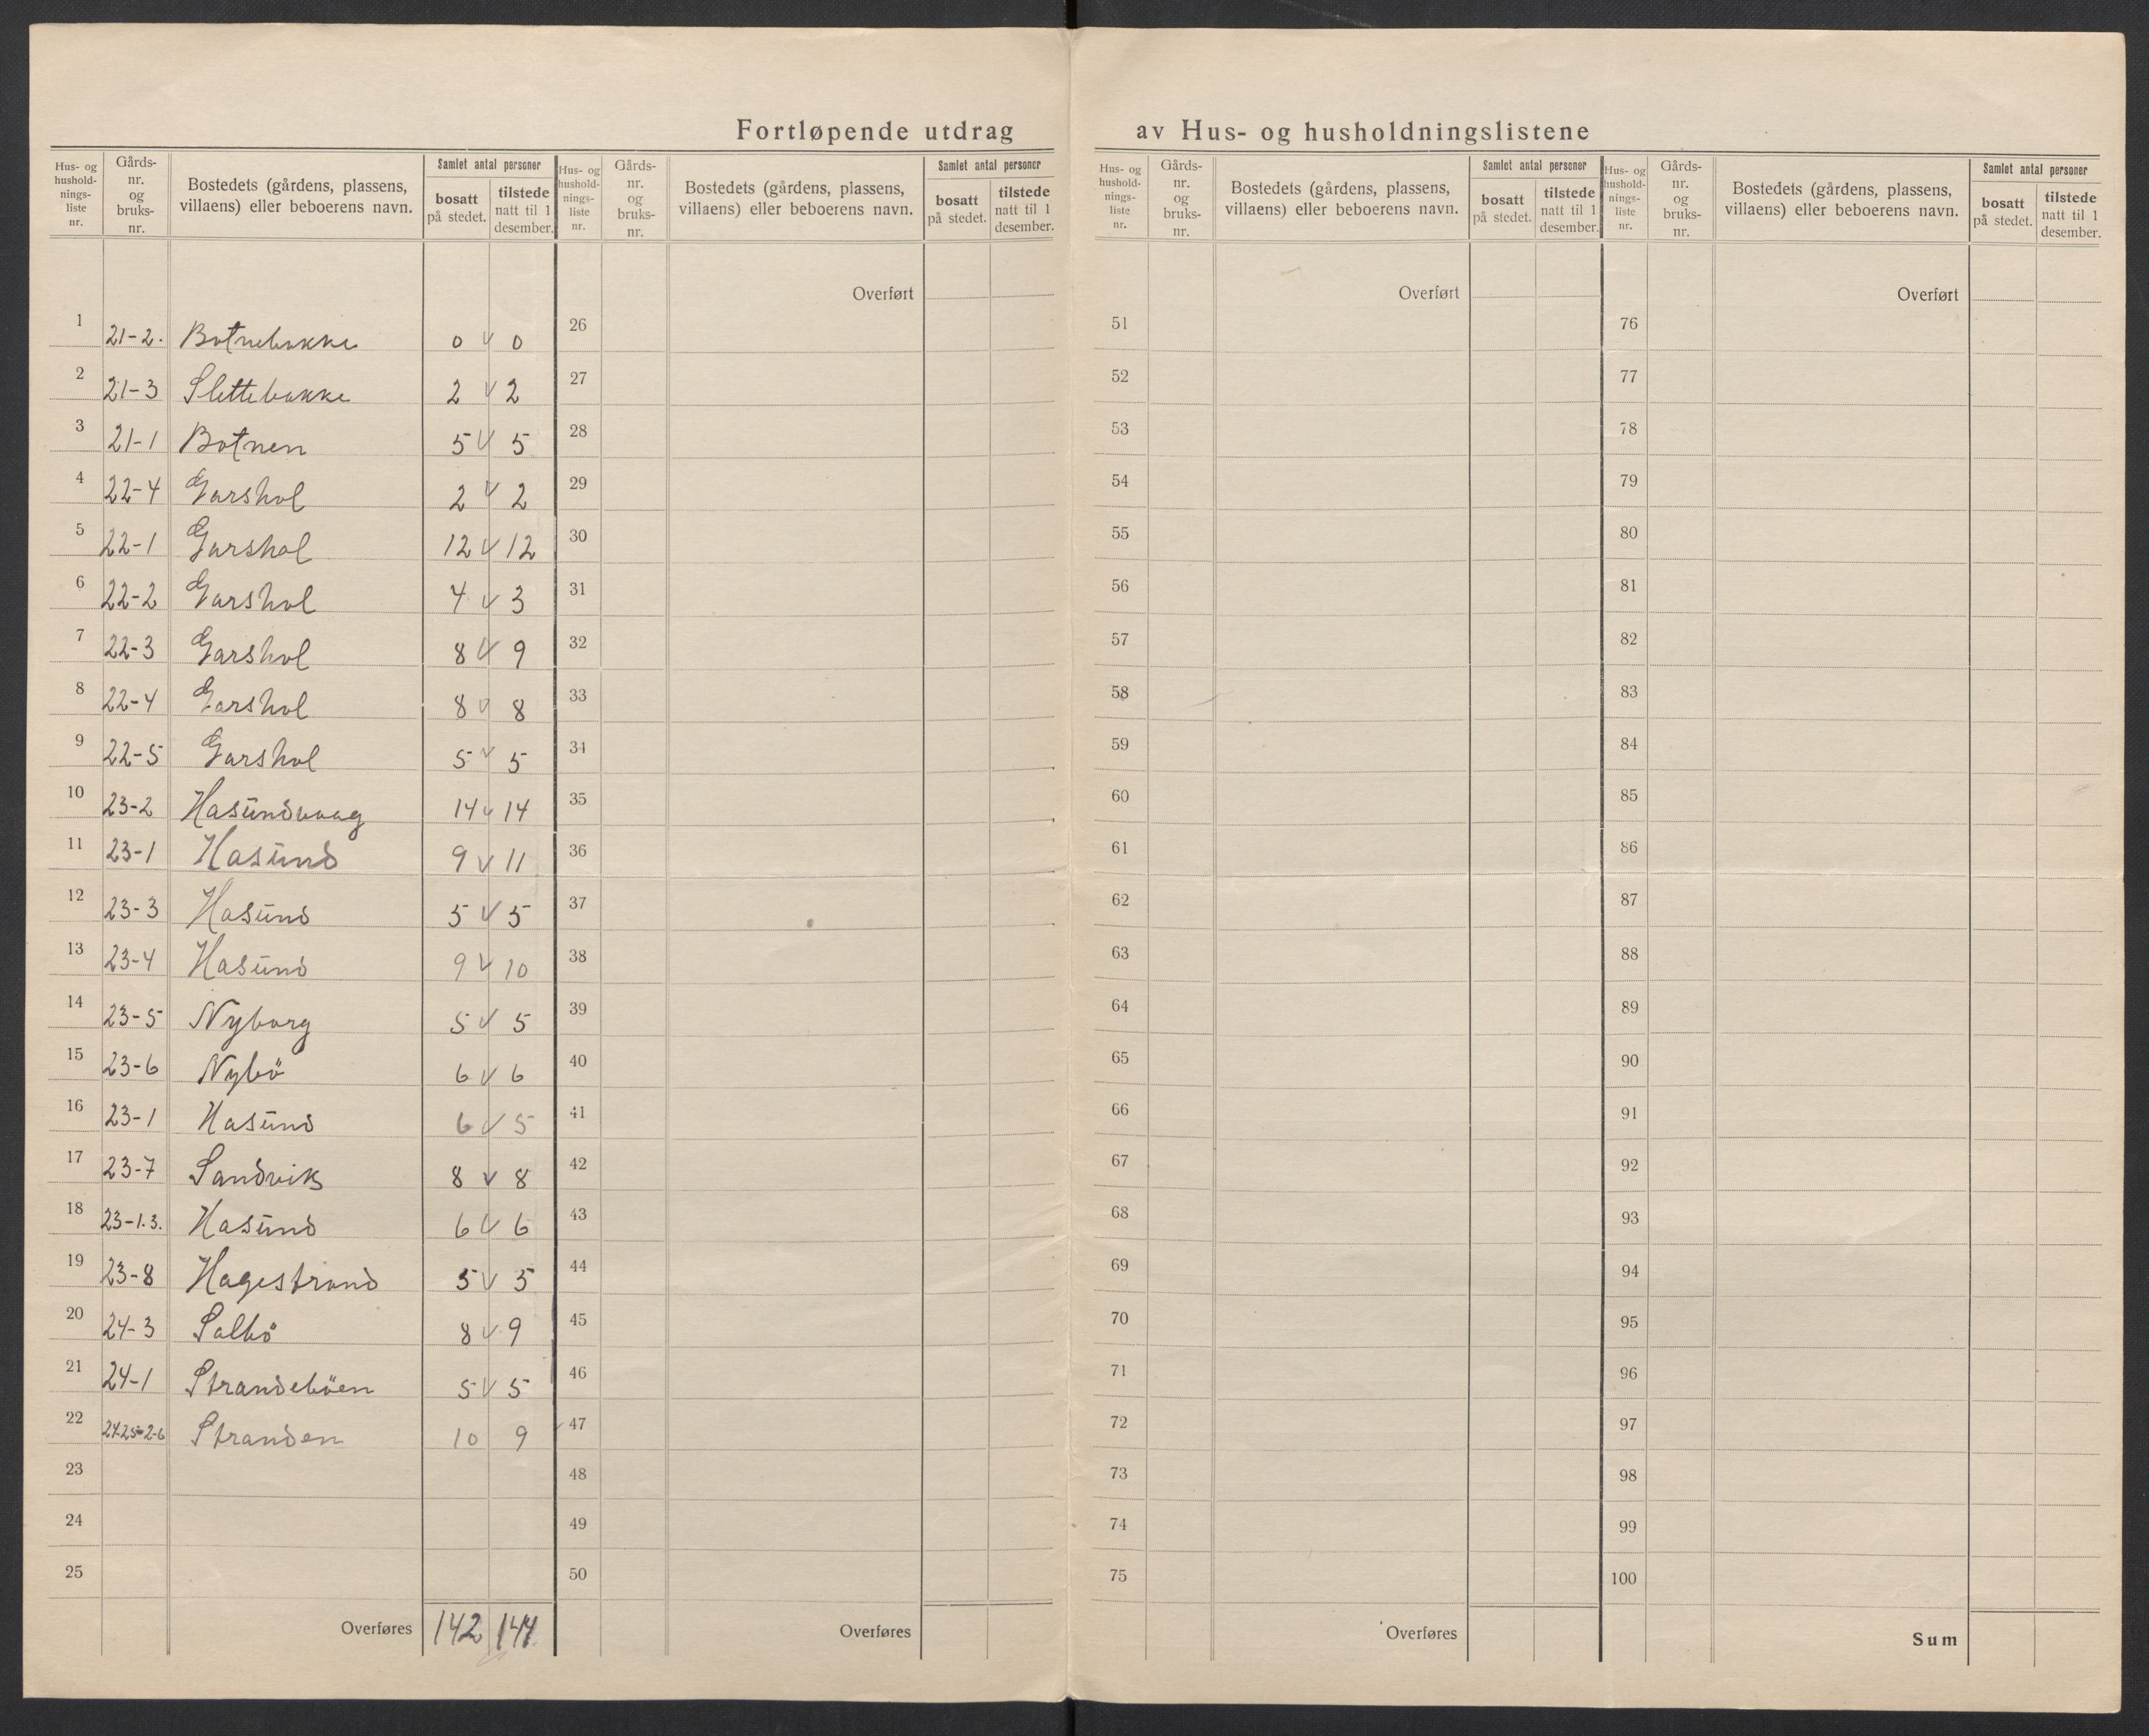 Fortløpende utdrag av Hus- og husholdningslistene
Hus- og hushold-nings-liste nr. Gårds-nr. og bruks-nr. Bostedets (gårdens, plassens, villaens) eller beboerens navn. Samlet antal personer bosatt på stedet. tilstede natt til 1 desember.
Hus- og hushold-nings-liste nr. Gårds-nr. og bruks-nr. Bostedets (gårdens, plassens, villaens) eller beboerens navn. Samlet antal personer bosatt på stedet. tilstede natt til 1 desember.
Hus- og hushold-nings-liste nr. Gårds-nr. og bruks-nr. Bostedets (gårdens, plassens, villaens) eller beboerens navn. Samlet antal personer bosatt på stedet. tilstede natt til 1 desember.
Hus- og hushold-nings-liste nr. Gårds-nr. og bruks-nr. Bostedets (gårdens, plassens, villaens) eller beboerens navn. Samlet antal personer bosatt på stedet. tilstede natt til 1 desember.
Overført Overført Overført
1 21-2. Botnebakke 0 v 0 26 51 76
2 21-3 Slettebakke 2 v 2 27 52 77
3 21-1 Botnen 5 v 5 28 53 78
4 22-4 Garshol 2 v 2 29 54 79
5 22-1 Garshol 12 v 12 30 55 80
6 22-2 Garshol 4 v 3 31 56 81
7 22-3 Garshol 8 v 9 32 57 82
8 22-4 Garshol 8 v 8 33 58 83
9 22-5 Garshol 5 v 5 34 59 84
10 23-2 Hasundvaag 14 v 14 35 60 85
11 23-1 Hasund 9 v 11 36 61 86
12 23-3 Hasund 5 v 5 37 62 87
13 23-4 Hasund 9 v 10 38 63 88
14 23-5 Nyborg 5 v 5 39 64 89
15 23-6 Nybö 6 v 6 40 65 90
16 23-1 Hasund 6 v 5 41 66 91
17 23-7 Sandvik 8 v 8 42 67 92
18 23-1.3. Hasund 6 v 6 43 68 93
19 23-8 Hagestrand 5 v 5 44 69 94
20 24-3 Solbö 8 v 9 45 70 95
21 24-1 Strandeböen 5 v 5 46 71 96
22 24-25-2-6 Stranden 10 9 47 72 97
23 48 73 98
24 49 74 99
25 50 75 100
Overføres 142 144. Overføres Overføres Sum